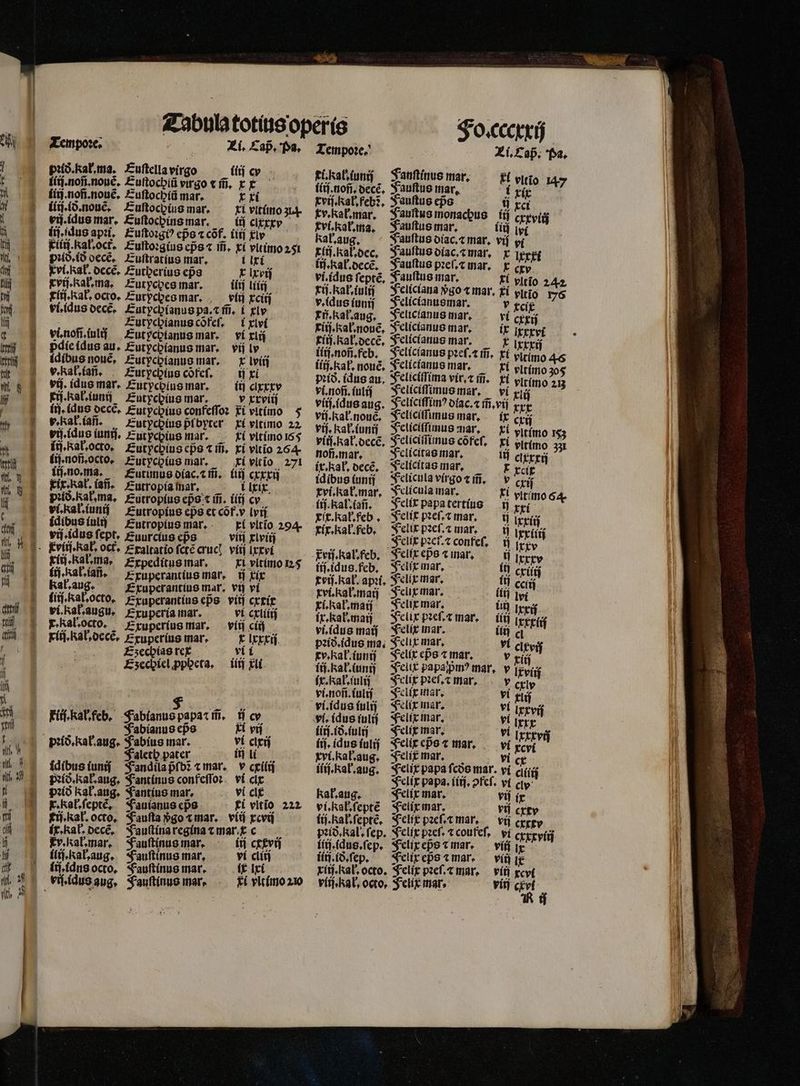 Tabula totius operis
Fo.cccxxij
Tempore. Li. Cap̃. Pa.
prid.kal.ma. Eustella virgo iiij cv
iiij.noñ.nouẽ. Eustochiũ virgo ⁊ m̃. x x
iiij.noñ.nouẽ. Eustochiũ mar. x xi
iiij.id.nouẽ. Eustochius mar. xi vltimo 314
vij.idus mar. Eustochius mar. iij clxxxv
iij.idus apri. Eustorgi⁹ ep̃s ⁊ cõf. iiij xlv
xiiij.kal.oct. Eustorgius ep̃s ⁊ m̃. xi vltimo 251
prid.id decẽ. Eustratius mar. i lxi
xvi.kal.decẽ. Eutherius ep̃s x lxvij
xvij.kal.ma. Eutyches mar. iiij liiij
xiij.kal.octo. Eutyches mar. viij xciij
vi.idus decẽ. Eutychianus pa.⁊ m̃. i xlv
Eutychianus cõfes. i xlvi
vi.noñ.iulij Eutychianus mar. vi xlij
pdie idus au. Eutychianus mar. vij lv
idibus nouẽ. Eutychianus mar. x lviij
v.kal.iañ. Eutychius cõfes. ij xi
vij. idus mar. Eutychius mar. iij clxxxv
xij.kal.iunij Eutychius mar. v xxviij
iij. idus decẽ. Eutychius confessor xi vltimo 5
v.kal.iañ. Eutychius p̃sbyter xi vltimo 22
vij.idus iunij. Eutychius mar. xi vltimo 165
iij.kal.octo. Eutychius ep̃s ⁊ m̃. xi vltio 264
iij.noñ.octo. Eutychius mar. xi vltio 271
iij.no.ma. Eutimus diac.⁊ m̃. iiij cxxxij
xix.kal. iañ. Eutropia mar. i lxix
prid.kal.ma. Eutropius ep̃s ⁊ m̃. iiij cv
vi.kal.iunij Eutropius ep̃s et cõf. v lvij
idibus iulij Eutropius mar. xi vltio 294
vij.idus sept. Euurcius ep̃s viij xlviij
xviij.kal. oct. Exaltatio scte cruc̃ viij lxxvi
xiij.kal.ma. Expeditus mar. xi vltimo 125
iij.kal.iañ. Exuperantius mar. ij xix
kal.aug. Exuperantius mar. vij vi
iiij.kal.octo. Exuperantius ep̃s viij cxxix
vi.kal.augu. Exuperia mar. vi cxliiij
x.kal.octo. Exuperius mar. viij ciij
xiij.kal.decẽ. Exuperius mar. x lxxxij
Ezechias rex vi i
Ezechiel ppheta. iiij xli
F
xiij.kal.feb. Fabianus papa ⁊ m̃. ij cv
Fabianus ep̃s xi vij
prid.kal.aug. Fabius mar. vi clxij
Faleth pater iij li
idibus iunij Fandila p̃sbr ⁊ mar. v cxiiij
prid.kal.aug. Fantinus confessor vi clx
prid kal.aug. Fantius mar. vi clx
x.kal.septẽ. Fauianus ep̃s xi vltio 222
xij.kal. octo. Fausta v̾go ⁊ mar. viij xcvij
ix.kal. decẽ. Faustina regina ⁊ mar.x c
xv.kal.mar. Faustinus mar. iij cxxvij
iiij.kal.aug. Faustinus mar. vi cliij
iij.idus octo. Faustinus mar. ix lxi
vij.idus aug. Faustinus mar. xi vltimo 210
Tempore. Li.Cap̃. Pa.
xi.kal.iunij Faustinus mar. xi vltio 147
iiij.noñ. decẽ. Faustus mar. i xix
xvij.kal.febr. Faustus ep̃s ij xci
xv.kal.mar. Faustus monachus iij cxxviij
xvi.kal.ma. Faustus mar. iiij lvi
kal.aug. Faustus diac.⁊ mar. vij vi
xiij.kal.dec. Faustus diac.⁊ mar. x lxxxi
iij.kal.decẽ. Faustus pres.⁊ mar. x cxv
vi.idus septẽ. Faustus mar. xi vltio 242
xij.kal.iulij Feliciana v̾go ⁊ mar. xi vltio 176
v.idus iunij Felicianus mar. v xcix
xñ.kal.aug. Felicianus mar. vi cxxij
xiij.kal.nouẽ. Felicianus mar. ix lxxxvi
xiij.kal.decẽ. Felicianus mar. x lxxxij
iiij.noñ.feb. Felicianus pres.⁊ m̃. xi vltimo 46
iiij.kal. nouẽ. Felicianus mar. xi vltimo 305
prid. idus au. Felicissima vir.⁊ m̃. xi vltimo 213
vi.noñ. iulij Felicissimus mar. vi xlij
viij.idus aug. Felicissim⁹ diac.⁊ m̃.vij xxx
vij.kal.nouẽ. Felicissimus mar. ix cxij
vij. kal.iunij Felicissimus mar. xi vltimo 153
viij.kal.decẽ. Felicissimus cõfes. xi vltimo 331
noñ.mar. Felicitas mar. iij clxxxij
ix.kal. decẽ. Felicitas mar. x xcix
idibus iunij Felicula virgo ⁊ m̃. v cxij
xvi.kal.mar. Felicula mar. xi vltimo 64
iij.kal.iañ. Felix papa tertius ij xxi
xix.kal.feb. Felix pres.⁊ mar. ij lxxiij
xix.kal.feb. Felix pres.⁊ mar. ij lxxiiij
Felix pres.⁊ confes. ij lxxv
xvij.kal.feb. Felix ep̃s ⁊ mar. ij lxxxv
iij.idus.feb. Felix mar. iij cxiiij
xvij.kal. apri. Felix mar. iij cciij
xvi.kal.maij Felix mar. iiij lvi
xi.kal.maij Felix mar. iiij lxxij
ix.kal.maij Felix pres.⁊ mar. iiij lxxxiij
vi.idus maij Felix mar. iiij cl
prid.idus ma. Felix mar. vi clxvij
xv.kal.iunij Felix ep̃s ⁊ mar. v xiij
iij.kal.iunij Felix papa pm⁹ mar. v lxviij
ix.kal.iulij Felix pres.⁊ mar. v cxlv
vi.noñ.iulij Felix mar. vi xlij
vi.idus iulij Felix mar. vi lxxvij
vi. idus iulij Felix mar. vi lxxx
iiij.id.iulij Felix mar. vi lxxxvij
iij. idus iulij Felix ep̃s ⁊ mar. vi xcvi
xvi.kal.aug. Felix mar. vi cx
iiij.kal.aug. Felix papa scds mar. vi cliiij
Felix papa. iiij. ɔfes. vi clv
kal.aug. Felix mar. vij ix
vi.kal.septẽ Felix mar. vij cxxv
iij.kal.septẽ. Felix pres.⁊ mar. vij cxxxv
prid.kal. sep. Felix pres. ⁊ confes. vi cxxxviij
iiij.idus.sep. Felix ep̃s ⁊ mar. viij lx
iiij.id.sep. Felix ep̃s ⁊ mar. viij lx
xiij.kal. octo. Felix pres.⁊ mar. viij xcvi
viij.kal. octo. Felix mar. viij cxvi
R ij